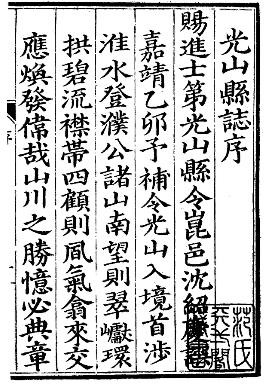 光山縣誌序
賜進士第光山縣令崑邑沈紹慶
嘉靖乙卯予補令光山入境首涉
淮水登濮公諸山南望則翠巘環
拱碧流襟帶四顧則凨氣翕來交
應煥發偉哉山川之勝憶必典章
序
范氏
天一閣